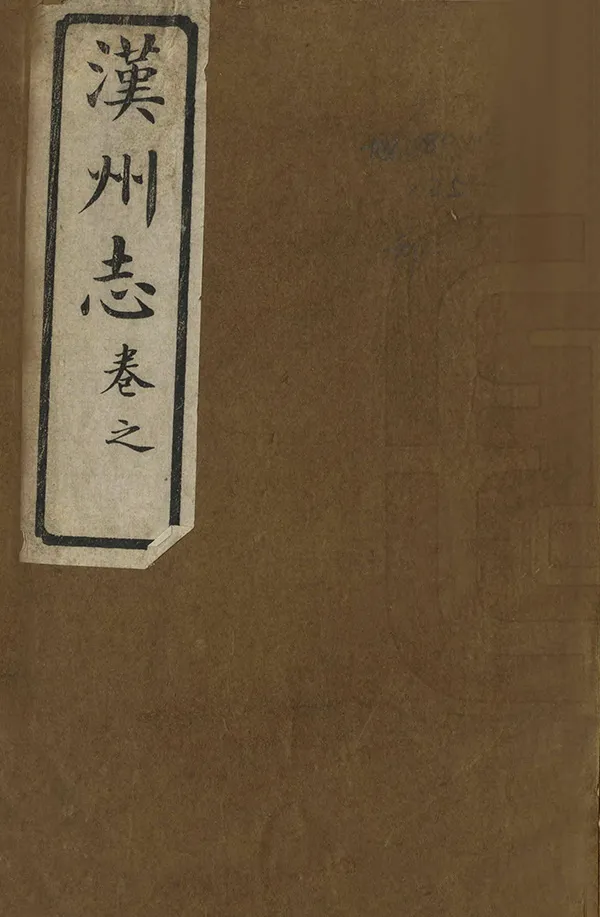 漢州志卷之